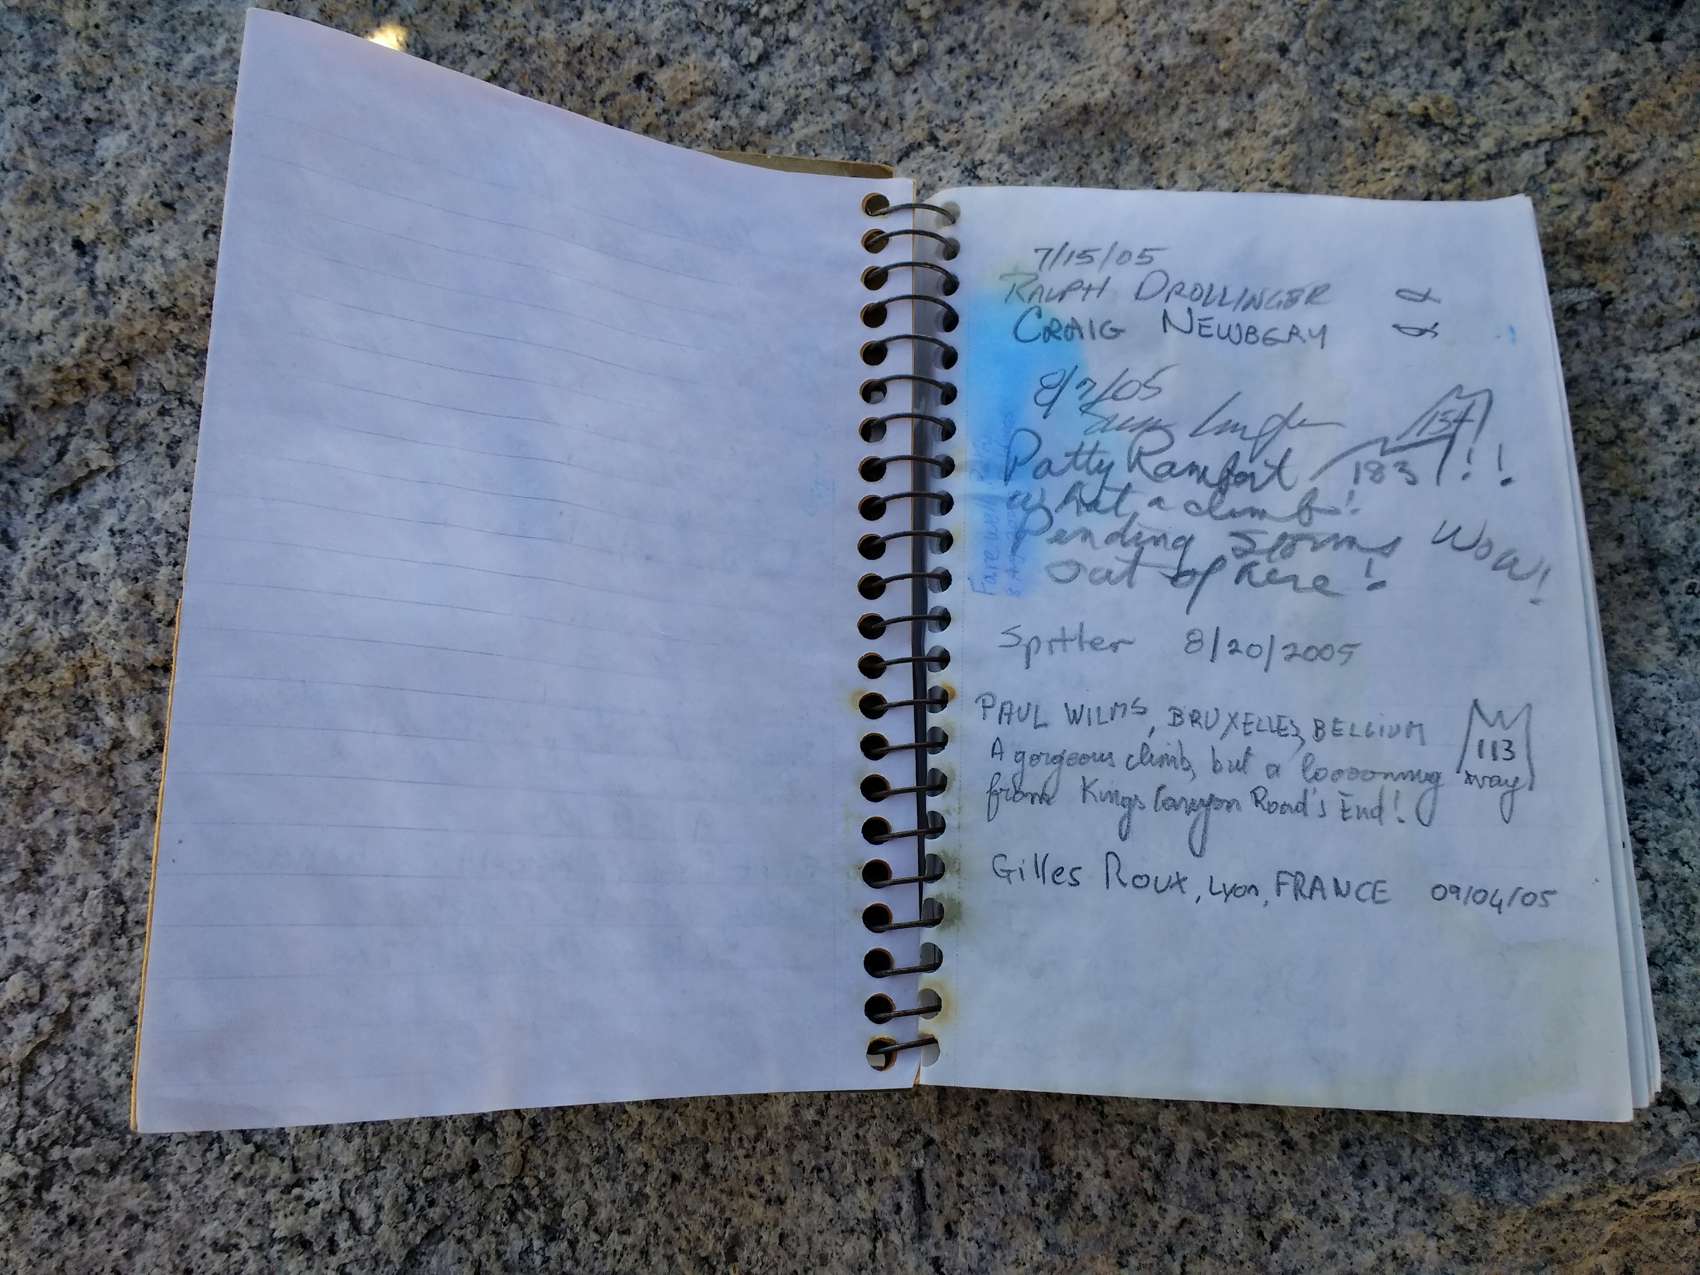 7/15/05
RALPH DROLLINGER
CRAIG NEWBERY
8/7/05
154
Patty Rambert 183 !!
what a climb!
Pending storms WOW!
out of here!
Spitler 8/20/2005
PAUL WILMS, BRUXELLES, BELGIUM 113
A gorgeous climb, but a looooonnng way
from Kings Canyon Road's End!
Gilles Roux, Lyon, FRANCE 09/04/05